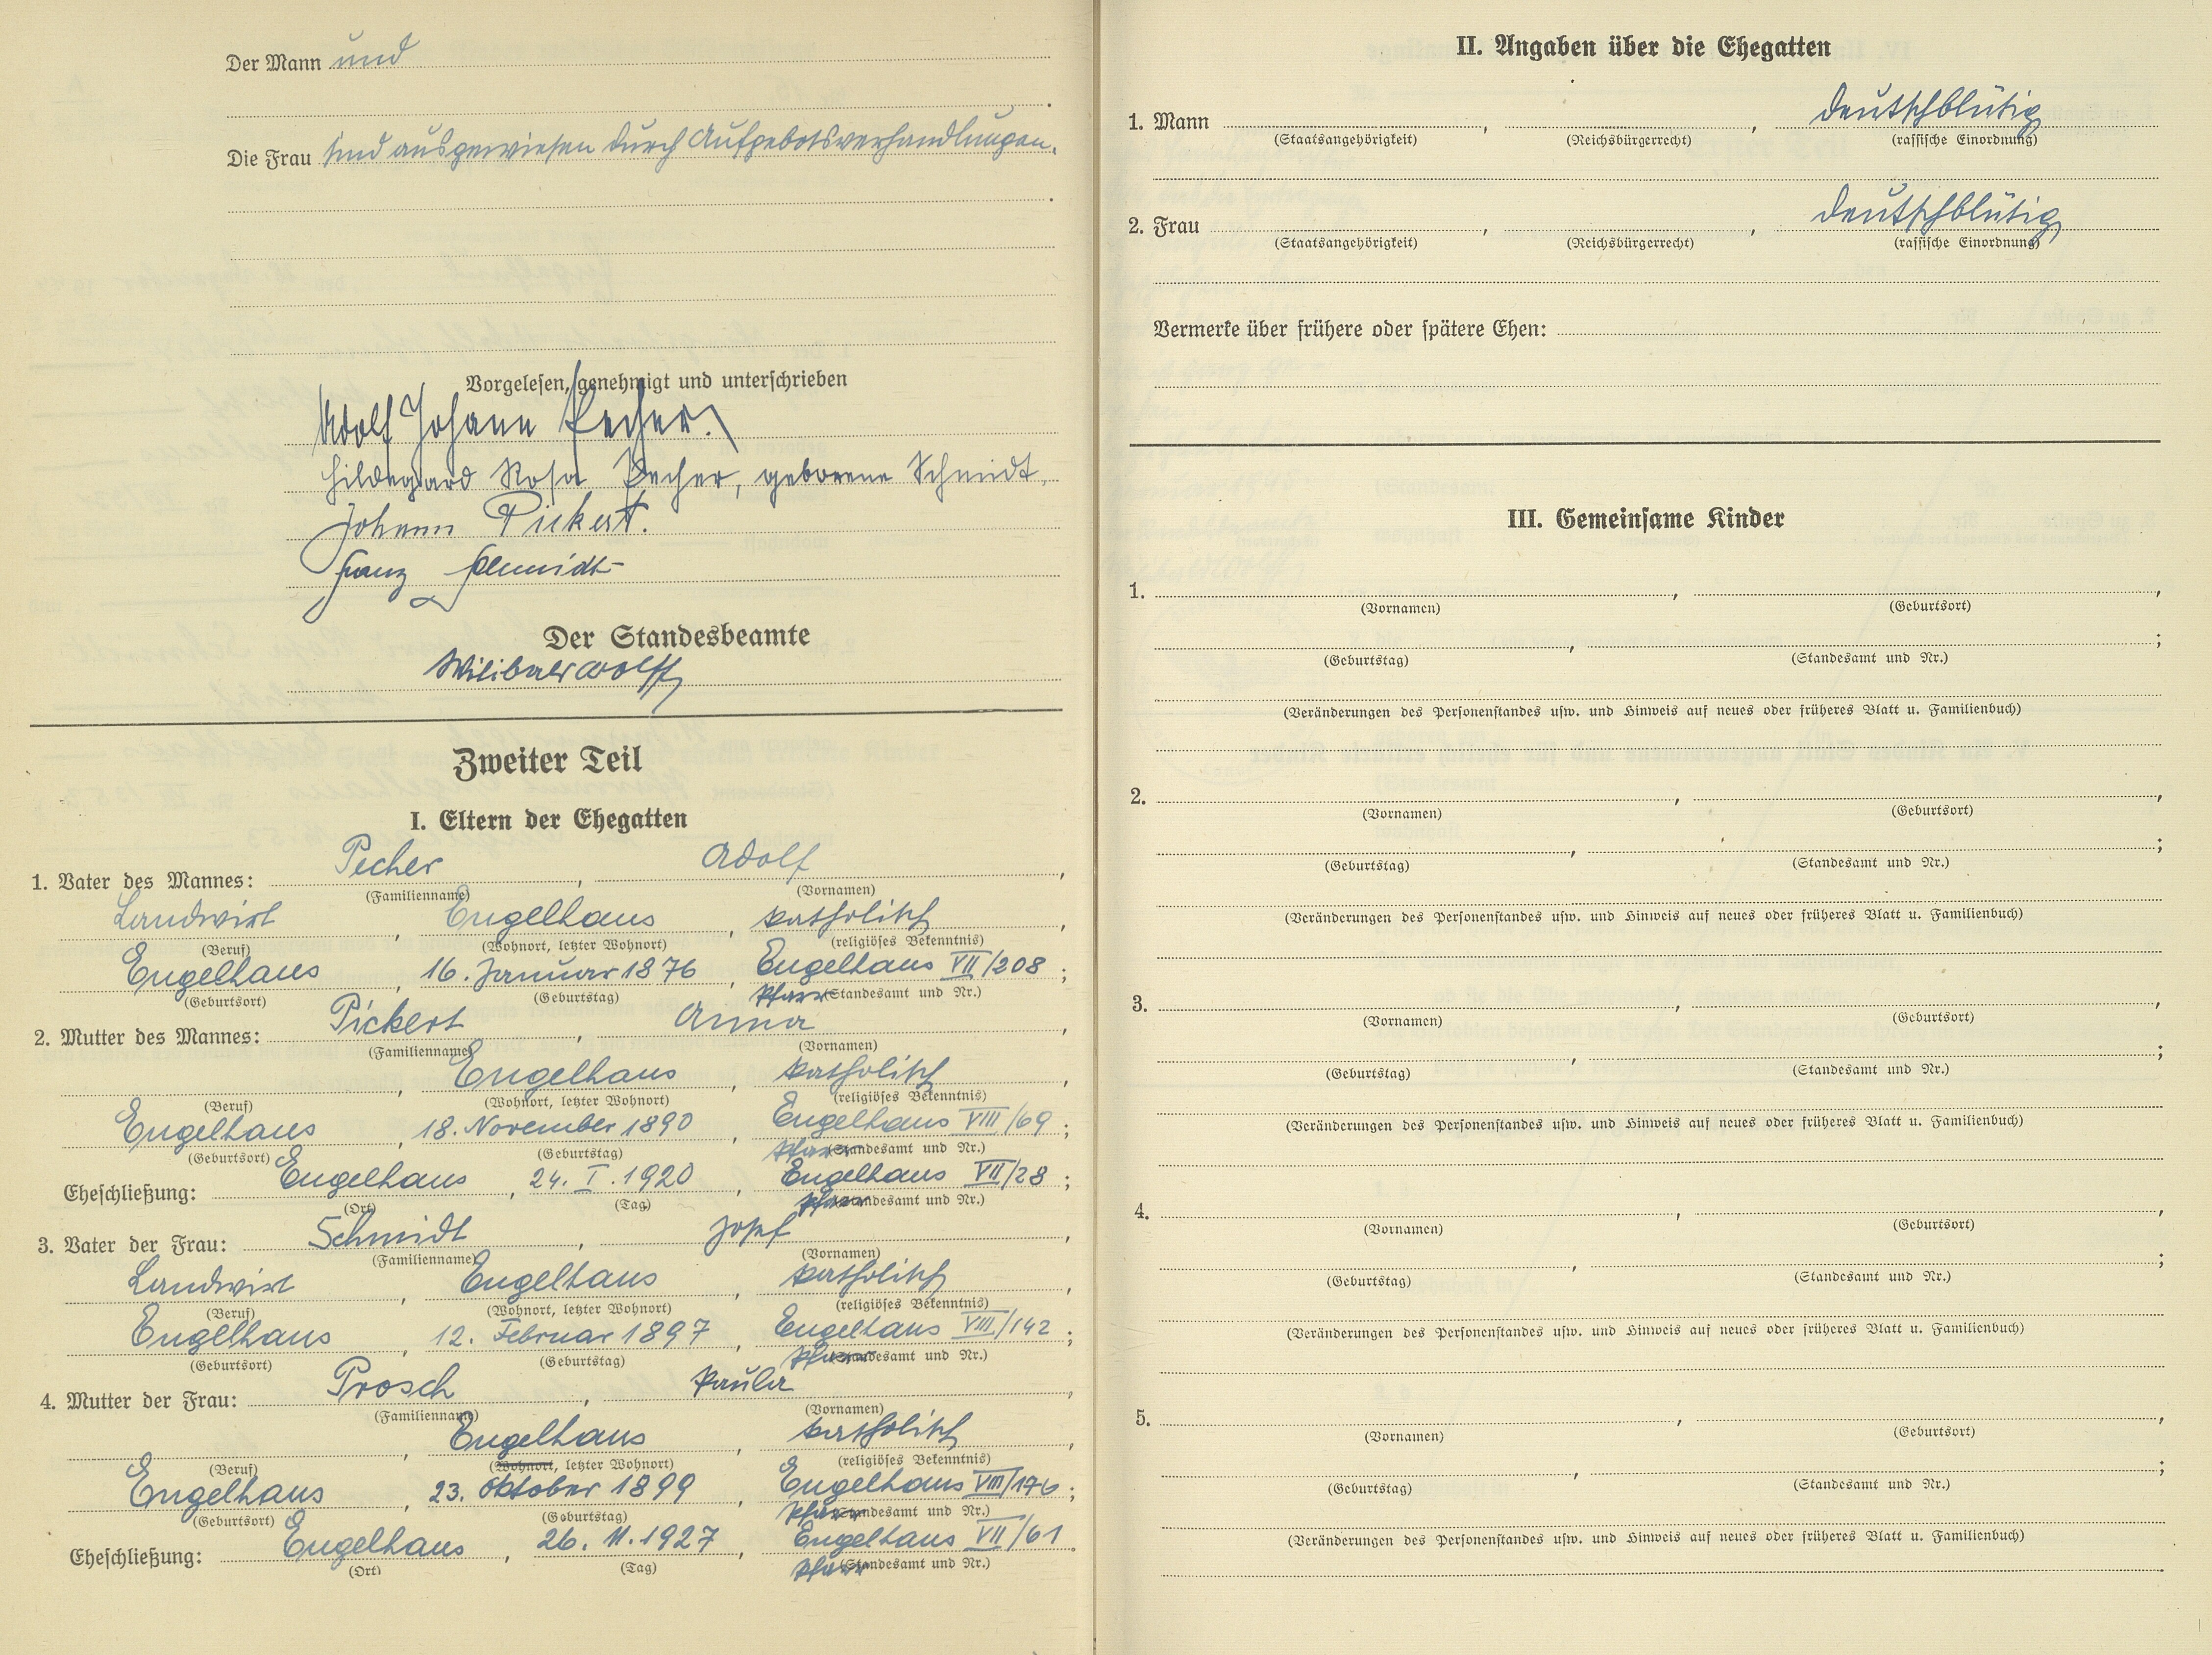 Der Mann und
Die Frau sind ausgewiesen durch Aufgebotsverhandlungen.
Vorgelesen, genehmigt und unterschrieben
Adolf Johann Pecher.
Hildegard Rosa Pecher, geborene Schmidt.
Johann Pickert.
Franz Schmidt
Der Standesbeamte
Wilibald Wolff
Zweiter Teil
I. Eltern der Ehegatten
1. Vater des Mannes: Pecher, Adolf,
(Familienname) (Vornamen)
Landwirt, Engelhaus, katholisch,
(Beruf) (Wohnort, letzter Wohnort) (religiöses Bekenntnis)
Engelhaus, 16. Januar 1876, Engelhaus VII/208;
(Geburtsort) (Geburtstag) Pfarr (Standesamt und Nr.)
2. Mutter des Mannes: Pickert, Anna,
(Familienname) (Vornamen)
, Engelhaus, katholisch,
(Beruf) (Wohnort, letzter Wohnort) (religiöses Bekenntnis)
Engelhaus, 18. November 1890, Engelhaus VIII/69;
(Geburtsort) (Geburtstag) Pfarr (Standesamt und Nr.)
Eheschließung: Engelhaus, 24. I. 1920, Engelhaus VII/28;
(Ort) (Tag) Pfarr (Standesamt und Nr.)
3. Vater der Frau: Schmidt, Josef,
(Familienname) (Vornamen)
Landwirt, Engelhaus, katholisch,
(Beruf) (Wohnort, letzter Wohnort) (religiöses Bekenntnis)
Engelhaus, 12. Februar 1897, Engelhaus VIII/142;
(Geburtsort) (Geburtstag) Pfarr (Standesamt und Nr.)
4. Mutter der Frau: Prosch, Paula,
(Familienname) (Vornamen)
, Engelhaus, katholisch,
(Beruf) (Wohnort, letzter Wohnort) (religiöses Bekenntnis)
Engelhaus, 23. Oktober 1899, Engelhaus VIII/176;
(Geburtsort) (Geburtstag) Pfarr (Standesamt und Nr.)
Eheschließung: Engelhaus, 26. II. 1927, Engelhaus VII/61.
(Ort) (Tag) Pfarr (Standesamt und Nr.)
II. Angaben über die Ehegatten
1. Mann , , deutschblütig
(Staatsangehörigkeit) (Reichsbürgerrecht) (rassische Einordnung)
2. Frau , , deutschblütig
(Staatsangehörigkeit) (Reichsbürgerrecht) (rassische Einordnung)
Vermerke über frühere oder spätere Ehen:
III. Gemeinsame Kinder
1. , ,
(Vornamen) (Geburtsort)
, ;
(Geburtstag) (Standesamt und Nr.)
(Veränderungen des Personenstandes usw. und Hinweis auf neues oder früheres Blatt u. Familienbuch)
2. , ,
(Vornamen) (Geburtsort)
, ;
(Geburtstag) (Standesamt und Nr.)
(Veränderungen des Personenstandes usw. und Hinweis auf neues oder früheres Blatt u. Familienbuch)
3. , ,
(Vornamen) (Geburtsort)
, ;
(Geburtstag) (Standesamt und Nr.)
(Veränderungen des Personenstandes usw. und Hinweis auf neues oder früheres Blatt u. Familienbuch)
4. , ,
(Vornamen) (Geburtsort)
, ;
(Geburtstag) (Standesamt und Nr.)
(Veränderungen des Personenstandes usw. und Hinweis auf neues oder früheres Blatt u. Familienbuch)
5. , ,
(Vornamen) (Geburtsort)
, ;
(Geburtstag) (Standesamt und Nr.)
(Veränderungen des Personenstandes usw. und Hinweis auf neues oder früheres Blatt u. Familienbuch)